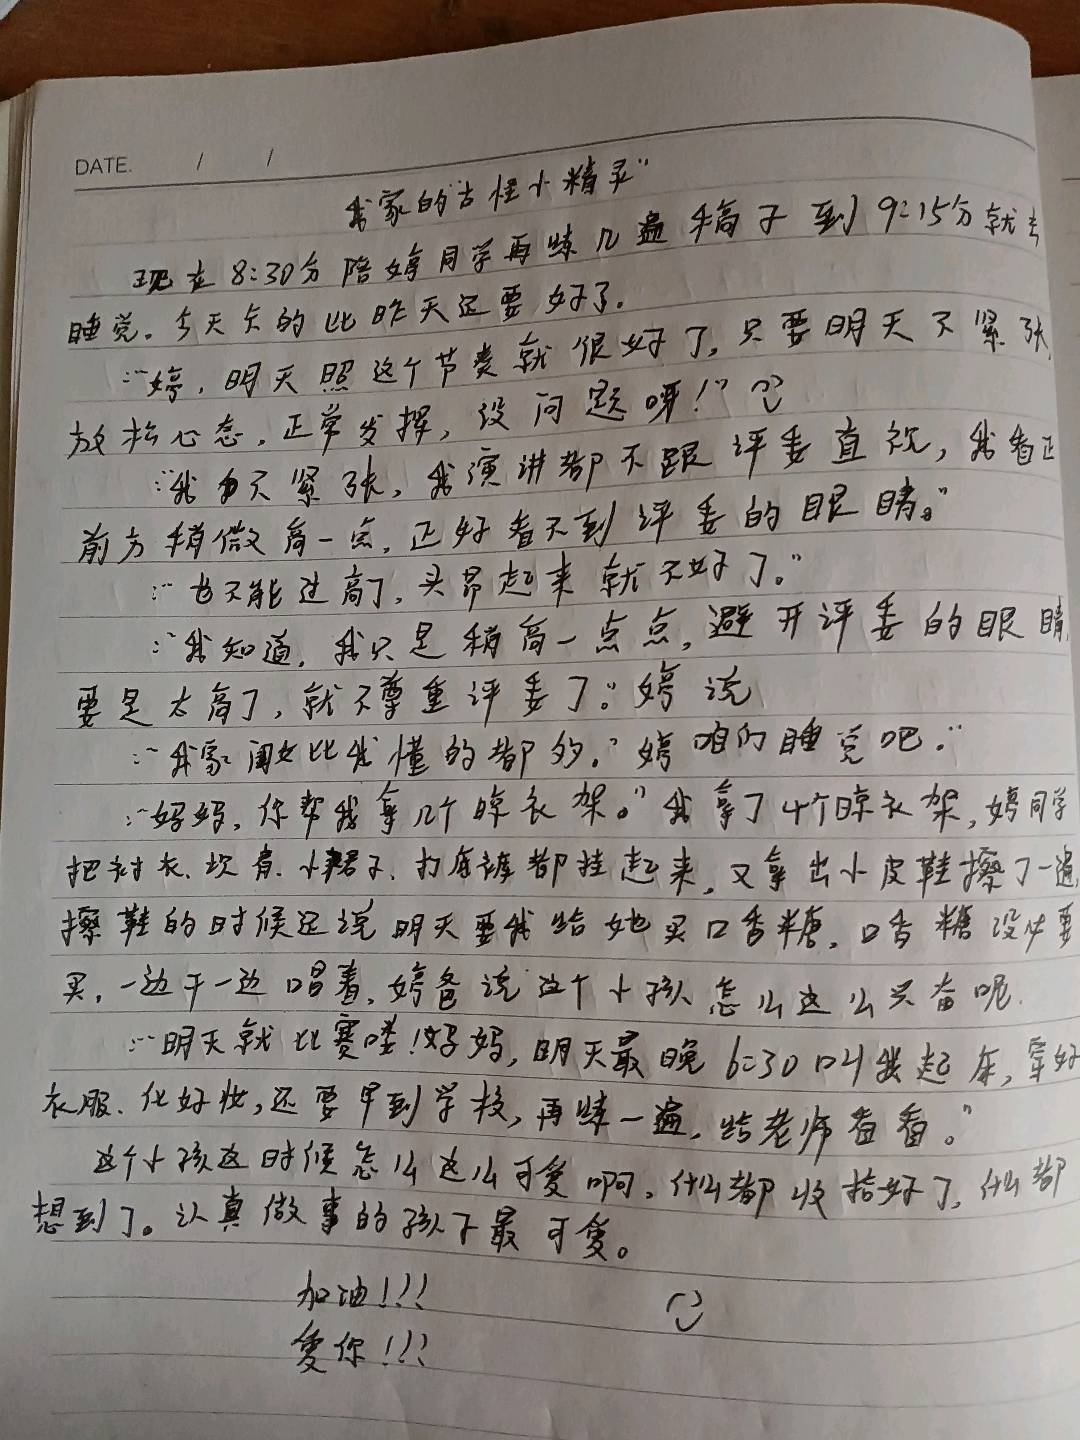 DATE. / /
我家的古怪小精灵"
现在8:30分陪婷同学再练几遍稿子到9:15分就去
睡觉。今天练的比昨天还要好了.
:"婷,明天照这个节奏就很好了,只要明天不紧张,
放松心态,正常发挥,没问题呀!"
:"我不紧张,我演讲都不跟评委直视,我看正
前方稍微高一点,正好看不到评委的眼睛。"
:"也不能过高了,头昂起来就不好了。"
:"我知道,我只是稍高一点点,避开评委的眼睛,
要是太高了,就不尊重评委了。"婷说
:"我家闺女比我懂的都多."婷咱们睡觉吧."
:"妈妈,你帮我拿几个晾衣架。"我拿了4个晾衣架,婷同学
把衬衣、坎肩、小裙子、打底裤都挂起来,又拿出小皮鞋擦了一遍,
擦鞋的时候还说明天要我给她买口香糖,口香糖没必要
买,一边干一边唱着,婷爸说这个小孩怎么这么兴奋呢.
:"明天就比赛喽!妈妈,明天最晚6:30叫我起床,穿好
衣服、化好妆,还要早到学校,再练一遍,给老师看看。"
这个小孩这时候怎么这么可爱啊,什么都收拾好了,什么都
想到了。认真做事的孩子最可爱。
加油!!!
爱你!!!